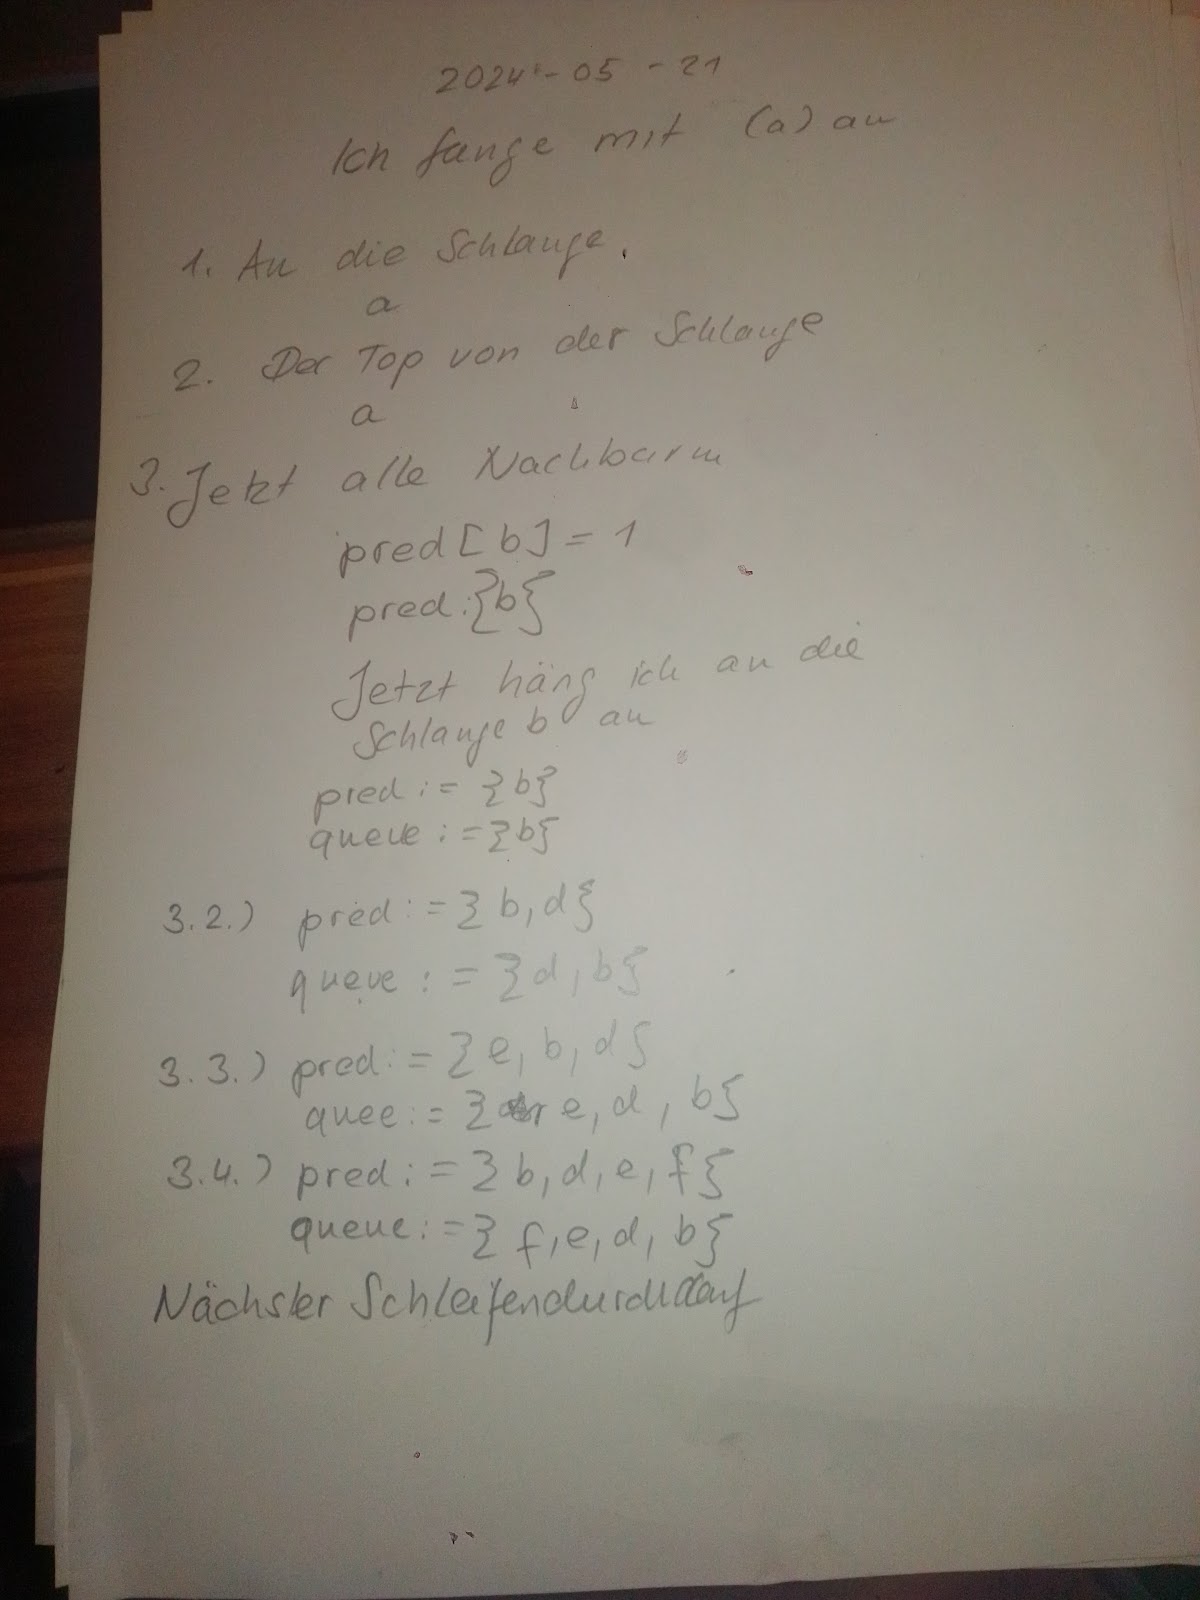 2024-05-21
Ich fange mit (a) an
1. An die Schlange.
a
2. Der Top von der Schlange
a
3. Jetzt alle Nachbarm
pred[b] = 1
pred:{b}
Jetzt häng ich an die
Schlange b an
pred := {b}
queue := {b}
3.2.) pred := {b, d}
queue := {d, b}
3.3.) pred := {e, b, d}
quee := { e, d, b}
3.4.) pred := {b, d, e, f}
queue := {f, e, d, b}
Nächster Schleifendurchlauf